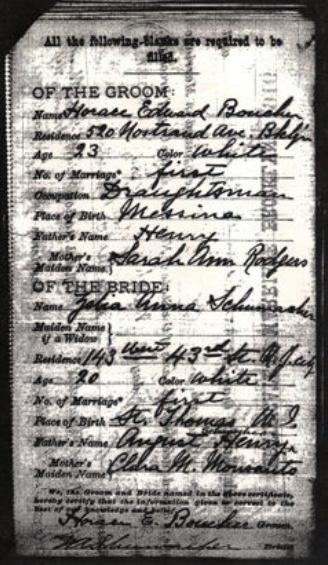 All the following blanks are required to be
filled.
OF THE GROOM:
Name Horace Edward Boucher
Residence 520 Nostrand Ave. Bklyn
Age 23 Color White
No. of Marriage* first
Occupation Draughtsman
Place of Birth Messina
Father's Name Henry
Mother's Maiden Name } Sarah Ann Rodgers
OF THE BRIDE:
Name Anna Schumacher
Maiden Name if a Widow }
Residence 143 West 43rd St. N.Y. City
Age 20 Color White
No. of Marriage* first
Place of Birth St. Thomas W I
Father's Name August Henry
Mother's Maiden Name } Clara M. Monsanto
We, the Groom and Bride named in the above certificate,
hereby certify that the information given is correct to the
best of our knowledge and belief.
Horace E. Boucher Groom.